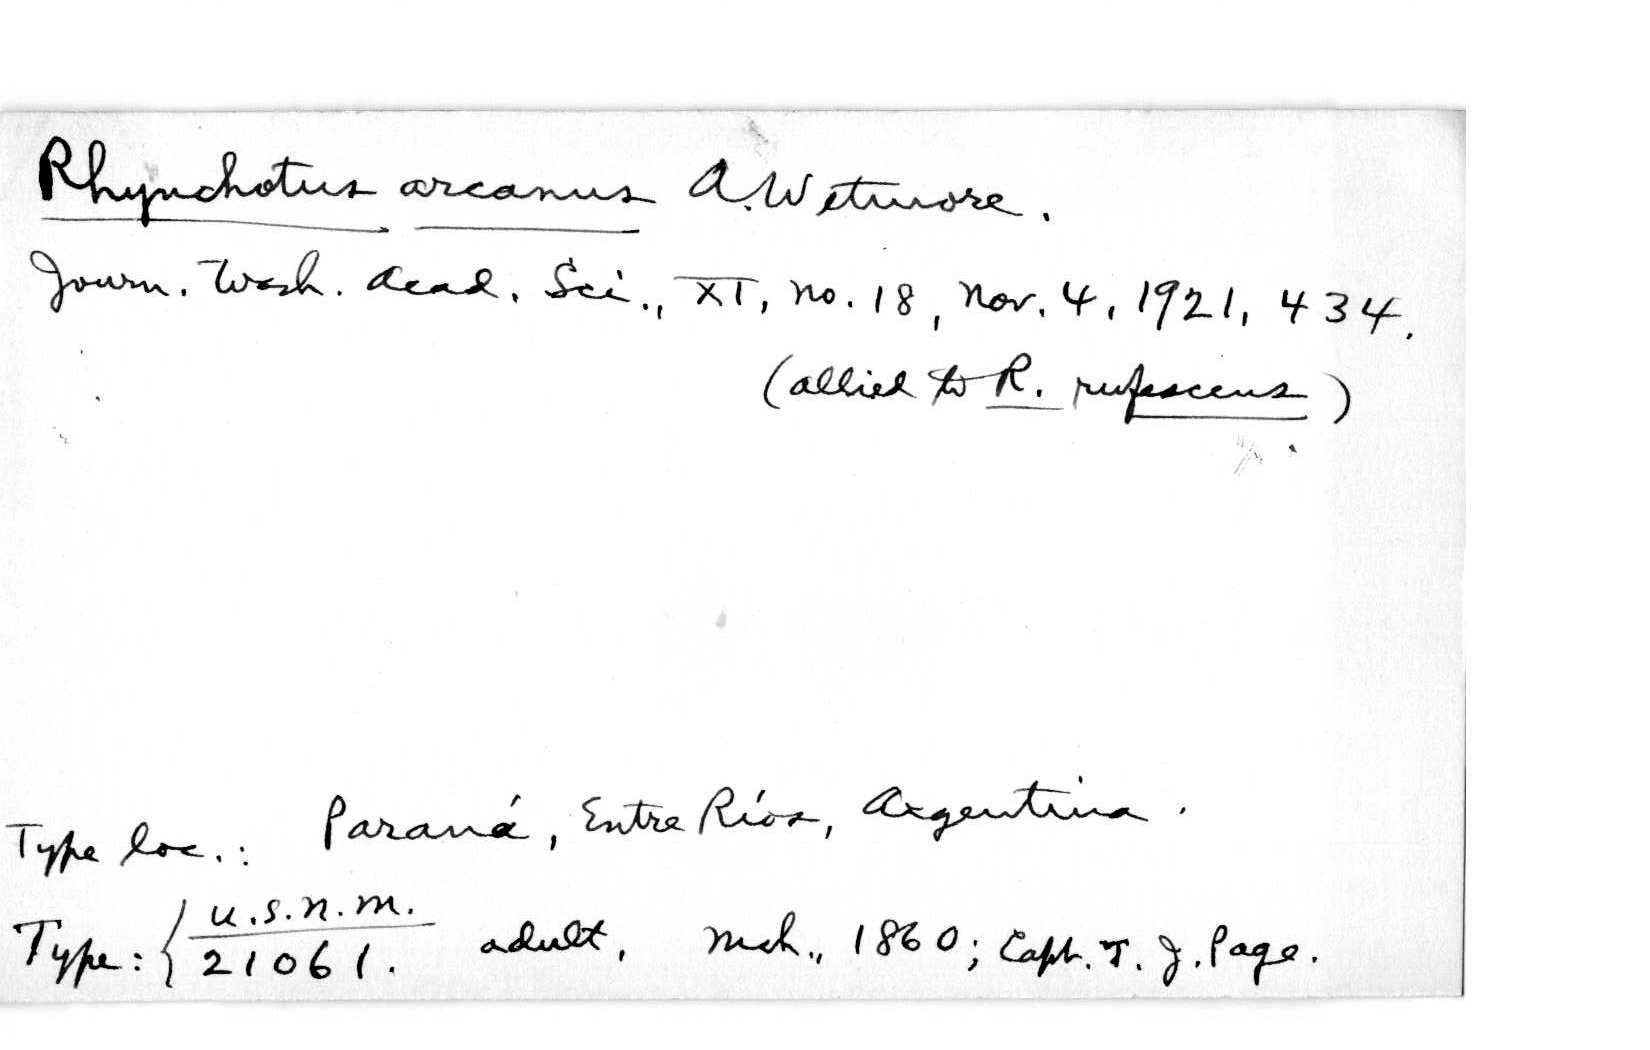 Rhynchotus arcanus A. Wetmore.
Journ. Wash. Acad. Sci., XI, no. 18, Nov. 4, 1921, 434.
(allied to R. rufescens)
Type loc.: Paraná, Entre Ríos, Argentina.
Type: { U.S.N.M.
21061. adult, Mch., 1860; Capt. T. J. Page.